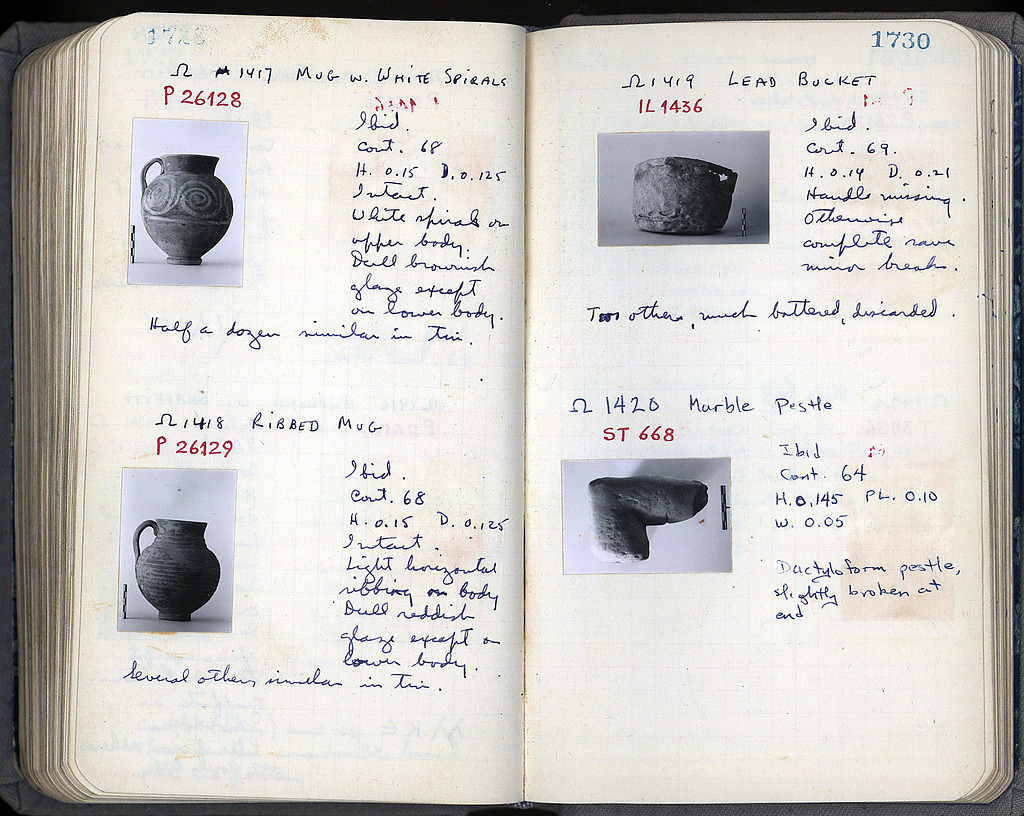 Ω 1417 MUG W. WHITE SPIRALS
P 26128
Ibid.
Cont. 68
H. 0.15 D. 0.125
Intact.
White spirals on
upper body.
Dull brownish
glaze except
on lower body.
Half a dozen similar in tin.
Ω 1418 RIBBED MUG
P 26129
Ibid.
Cont. 68
H. 0.15 D. 0.125
Intact.
Light horizontal
ribbing on body
Dull reddish
glaze except on
lower body.
Several others similar in tin.
1730
Ω 1419 LEAD BUCKET
IL 1436
Ibid.
Cont. 69.
H. 0.14 D. 0.21
Handle missing.
Otherwise
complete save
minor breaks.
Two others, much battered, discarded.
Ω 1420 Marble Pestle
ST 668
Ibid
Cont. 64
H. 0.145 PL. 0.10
W. 0.05
Dactyloform pestle,
slightly broken at
end